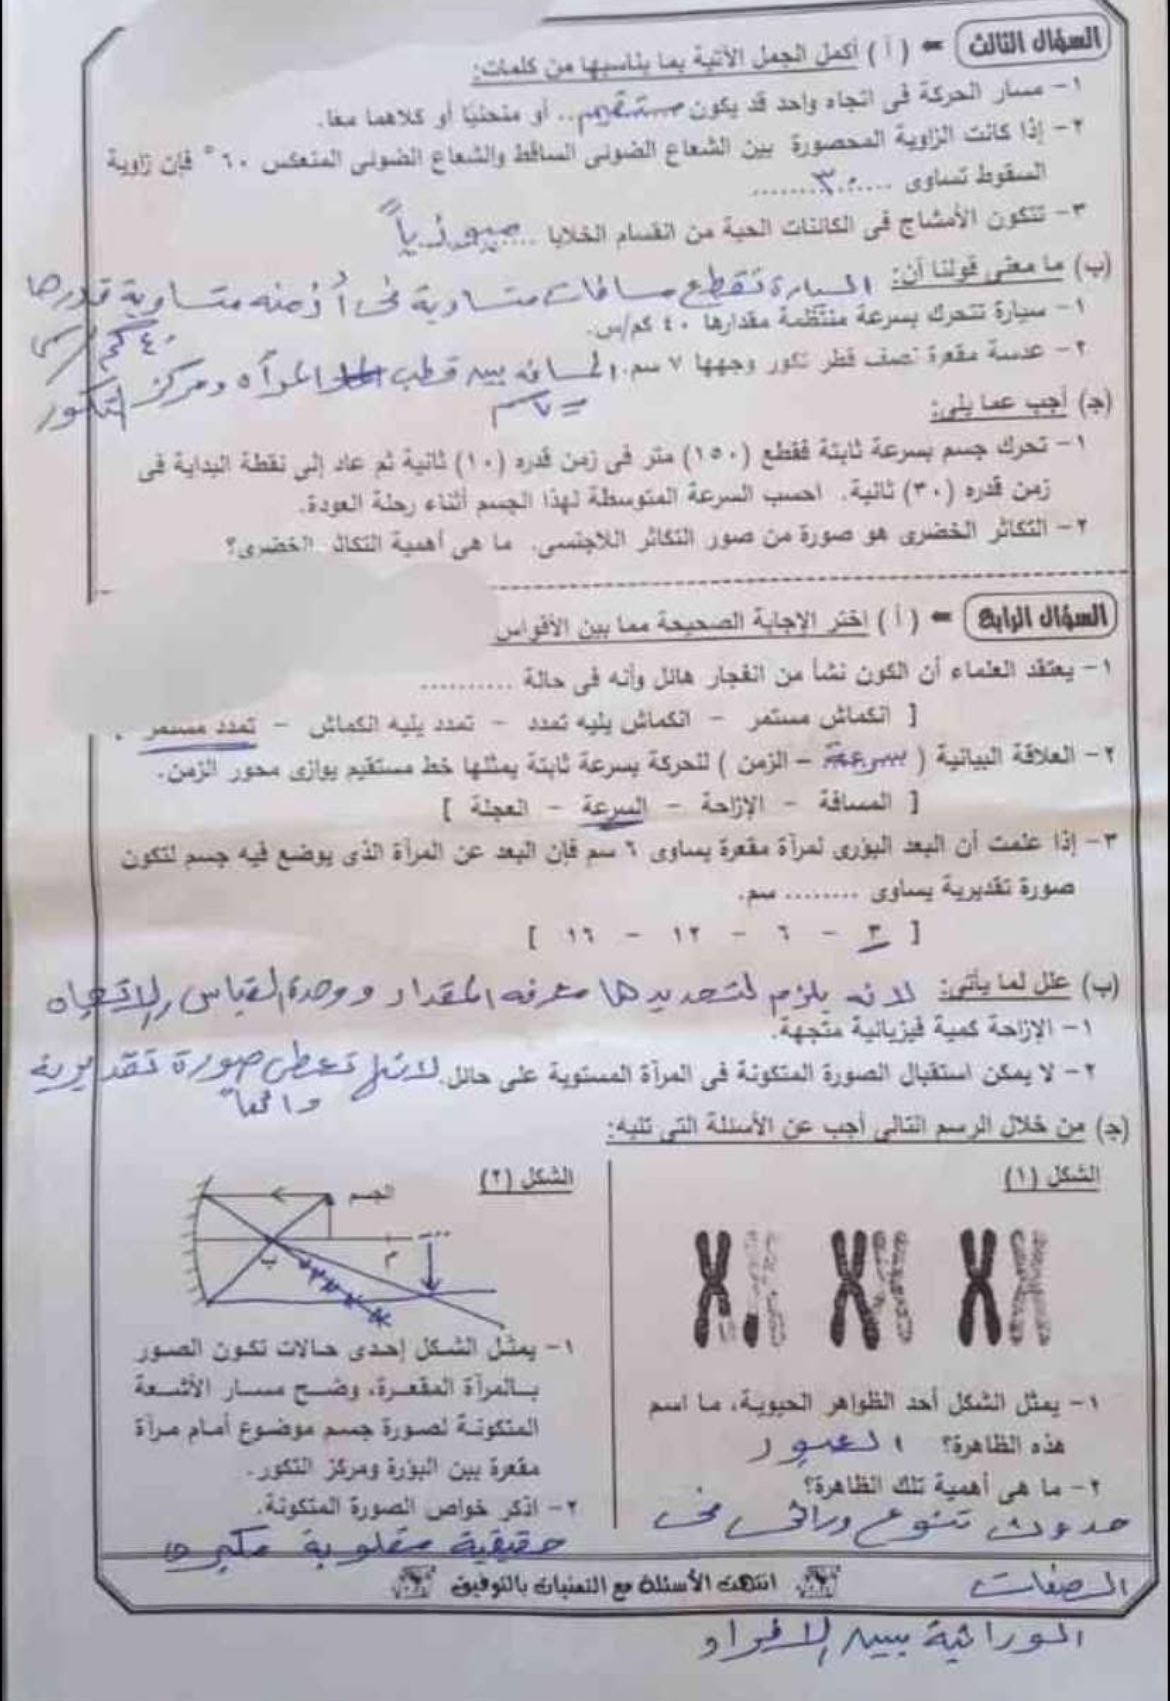 السؤال الثالث ← ( أ ) أكمل الجمل الآتية بما يناسبها من كلمات:
١- مسار الحركة فى اتجاه واحد قد يكون مستقيم.. أو منحنيًا أو كلاهما معًا.
٢- إذا كانت الزاوية المحصورة بين الشعاع الضوئى الساقط والشعاع الضوئى المنعكس ٦٠° فإن زاوية
السقوط تساوى .....٣٠........
٣- تتكون الأمشاج فى الكائنات الحية من انقسام الخلايا ..ميوزياً
(ب) ما معنى قولنا أن: السيارة تقطع مسافات متساوية فى أزمنه متساوية قدرها
٤٠ كم/س
١- سيارة تتحرك بسرعة منتظمة مقدارها ٤٠ كم/س.
٢- عدسة مقعرة نصف قطر تكور وجهها ٧ سم. المسافه بين قطب المرآه ومركز التكور
= ٧ سم
(ج) أجب عما يلى:
١- تحرك جسم بسرعة ثابتة فقطع (١٥٠) متر فى زمن قدره (١٠) ثانية ثم عاد إلى نقطة البداية فى
زمن قدره (٣٠) ثانية. احسب السرعة المتوسطة لهذا الجسم أثناء رحلة العودة.
٢- التكاثر الخضرى هو صورة من صور التكاثر اللاجنسى. ما هى أهمية التكاثر الخضرى؟
السؤال الرابع ← ( أ ) اختر الإجابة الصحيحة مما بين الأقواس
١- يعتقد العلماء أن الكون نشأ من انفجار هائل وأنه فى حالة ..........
[ انكماش مستمر - انكماش يليه تمدد - تمدد يليه انكماش - تمدد مستمر
٢- العلاقة البيانية ( سرعة - الزمن ) للحركة بسرعة ثابتة يمثلها خط مستقيم يوازى محور الزمن.
[ المسافة - الإزاحة - السرعة - العجلة ]
٣- إذا علمت أن البعد البؤرى لمرآة مقعرة يساوى ٦ سم فإن البعد عن المرآة الذى يوضع فيه جسم لتكون
صورة تقديرية يساوى ........ سم.
[ ٣ - ٦ - ١٢ - ١٦ ]
(ب) علل لما يأتى: لانه يلزم لتحديدها معرفه المقدار ووحدة القياس والاتجاه
١- الإزاحة كمية فيزيائية متجهة.
٢- لا يمكن استقبال الصورة المتكونة فى المرآة المستوية على حائل. لانها تعطى صورة تقديرية
دائماً
(ج) من خلال الرسم التالى أجب عن الأسئلة التى تليه:
الشكل (١)
١- يمثل الشكل أحد الظواهر الحيوية، ما اسم
هذه الظاهرة؟ العبور
٢- ما هى أهمية تلك الظاهرة؟
حدوث تنوع وراثى فى
الصفات
الوراثية بين الافراد
الشكل (٢)
الجسم
ب
م
١- يمثل الشكل إحدى حالات تكون الصور
بالمرآة المقعرة، وضح مسار الأشعة
المتكونة لصورة جسم موضوع أمام مرآة
مقعرة بين البؤرة ومركز التكور.
٢- اذكر خواص الصورة المتكونة.
حقيقية مقلوبة مكبره
انتهت الأسئلة مع التمنيات بالتوفيق